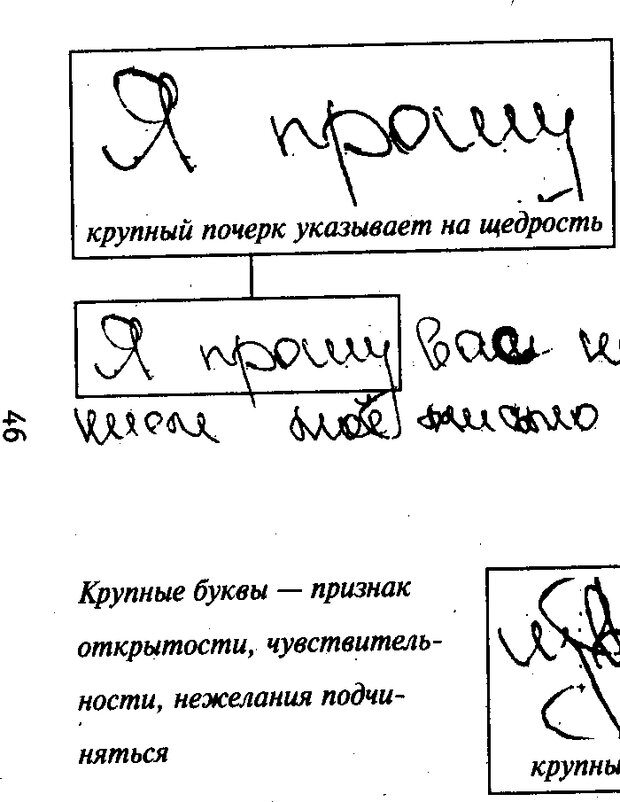 Я прошу
крупный почерк указывает на щедрость
Я прошу вас
моё письмо
46
Крупные буквы — признак
открытости, чувствитель-
ности, нежелания подчи-
няться
крупны